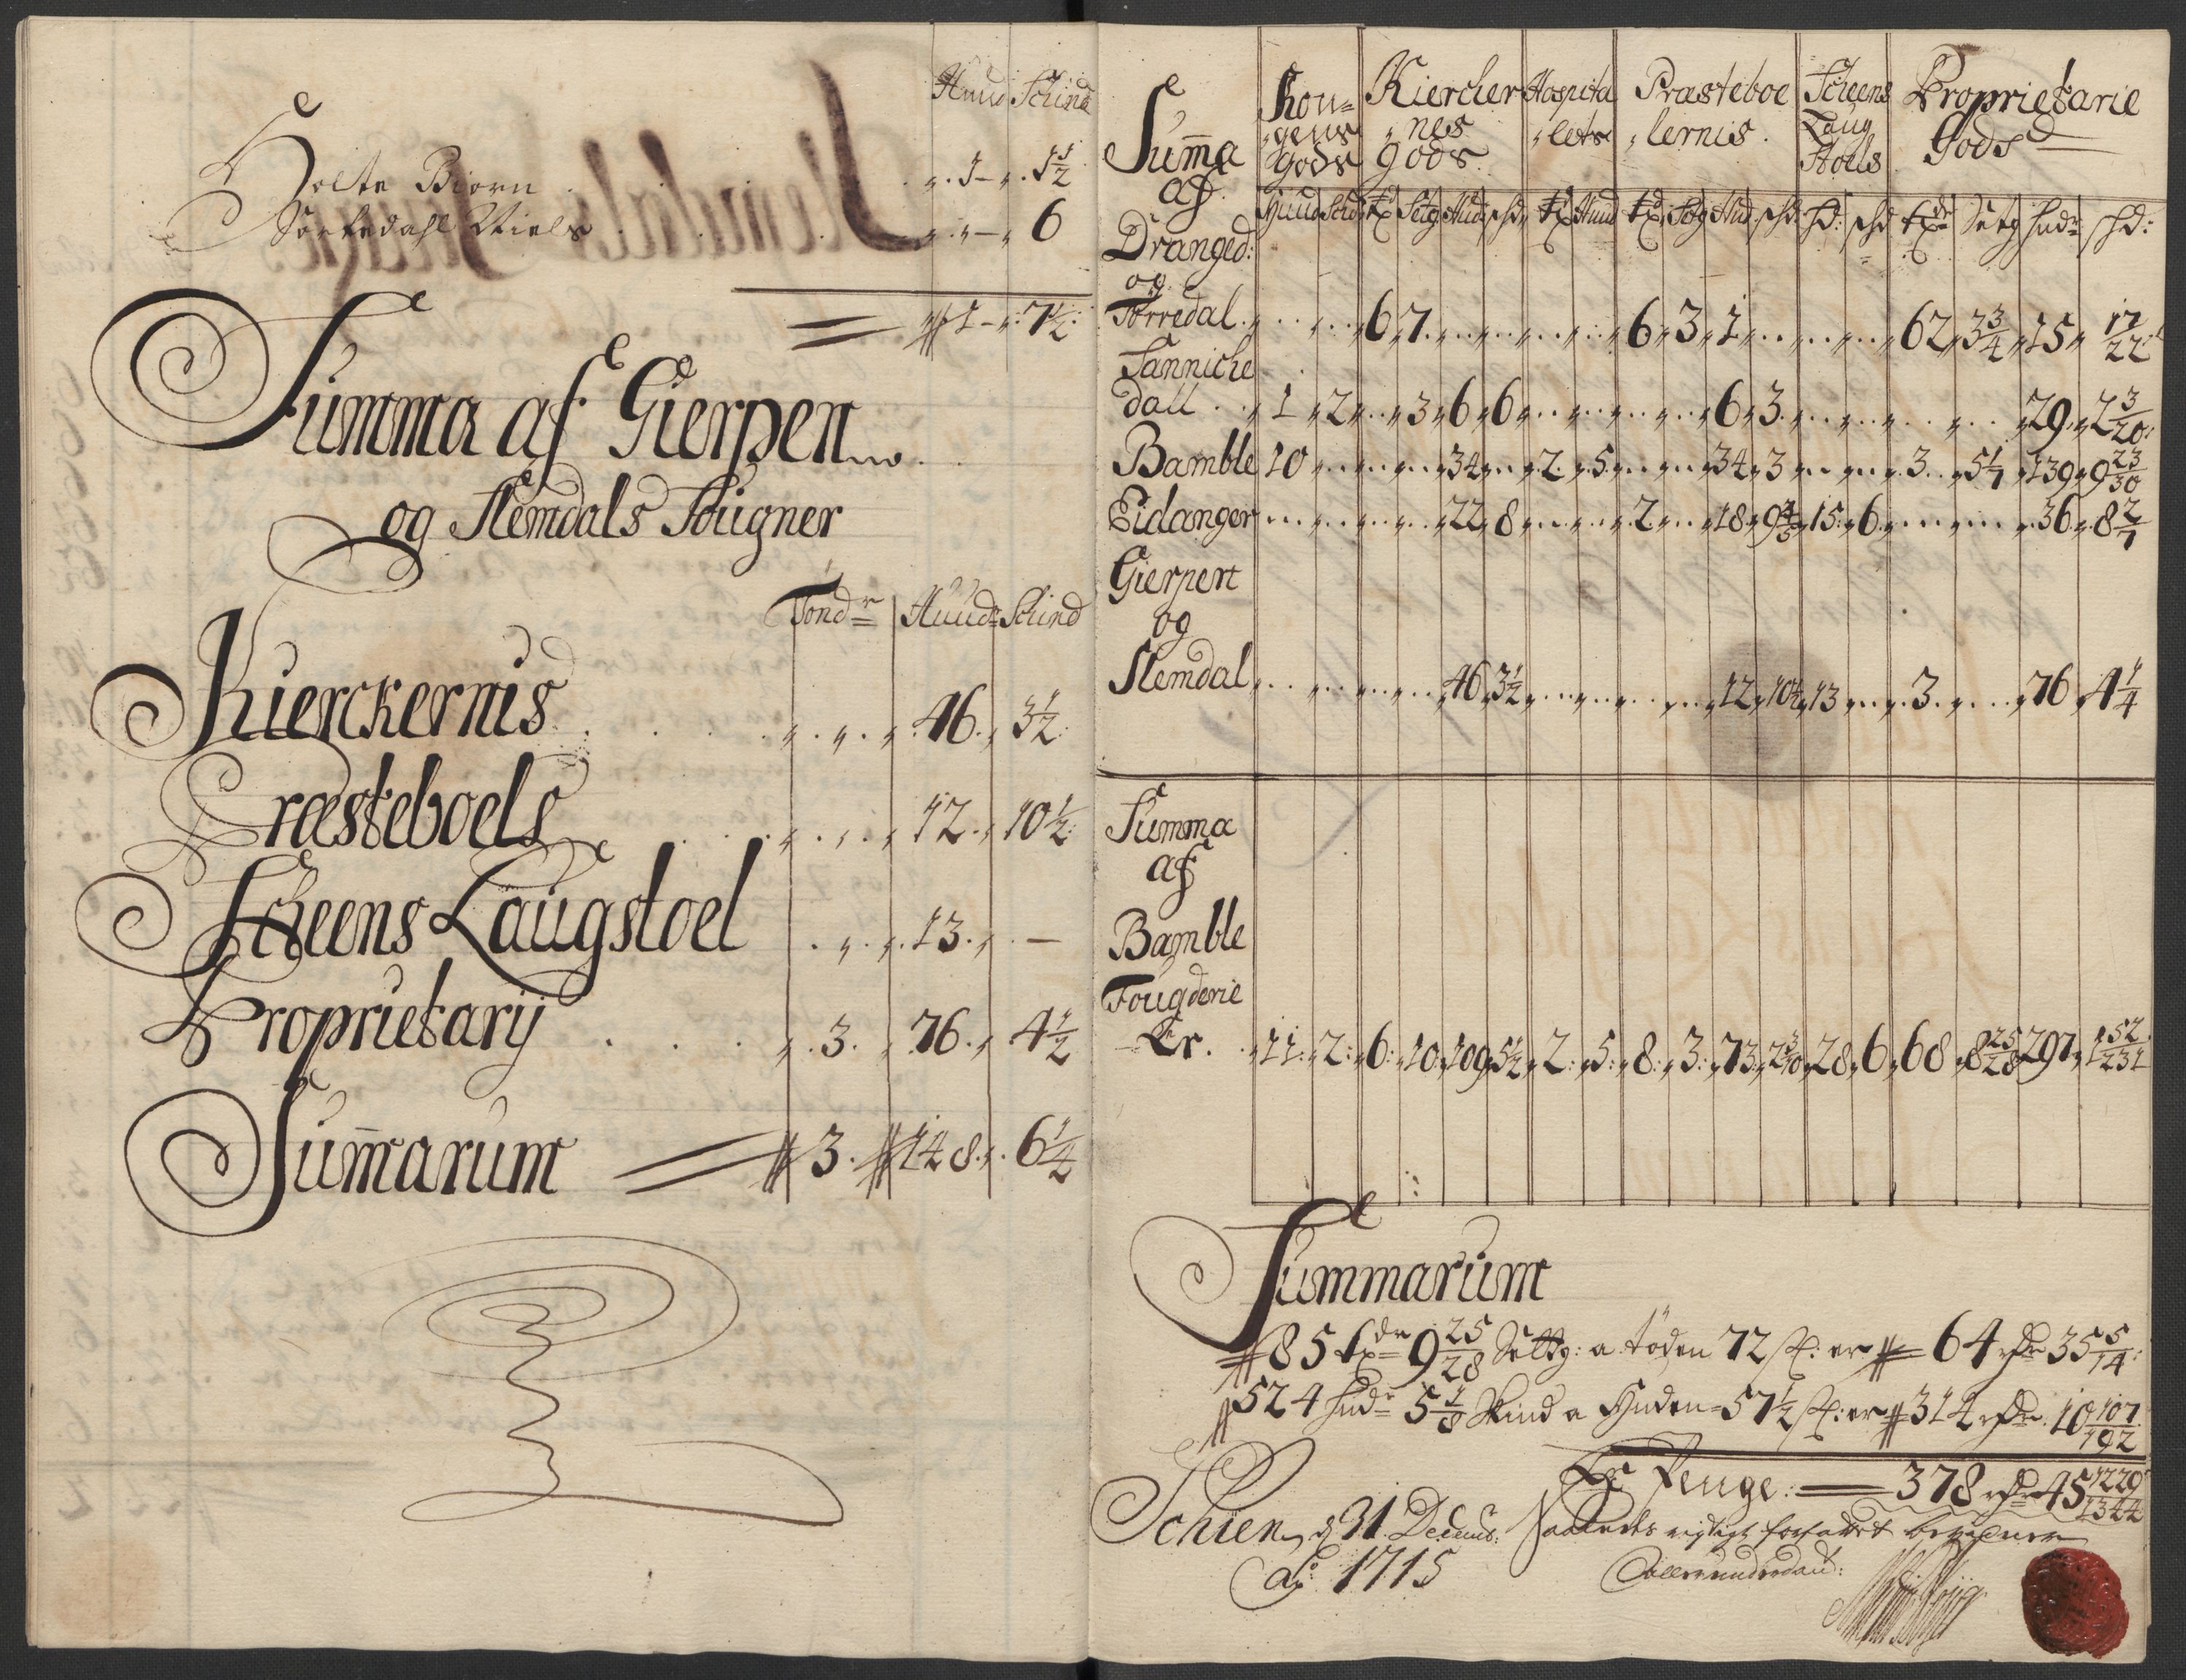 Huud Schind
Holte Biørn . . . 1 – 1½
Sortedahl Niels . . . – 6
1 – 7½
Summa af Gierpen
og Slemdals Sougner
Tondr Huudr Schind
Kierckernis . . . 46 . 3½
Præsteboels . . . 12 . 10½
Scheens Laugstoel . . . 13 . –
Proprietarij . . . 3 . 76 . 4½
Sum̄arum 3 . 148 . 6½
Sum̄a af Kongens Gods Kierchernes Gods Hospitalets Præsteboelernis Scheens Laug Stoels Proprietarie Gods
Huud Schd txr Setg Hud shd tx Hund tx Setg Hud shd hd: shd txdr Setg hudr shd:
Dranged:
og
Tørredal . . . 6 7 . . . 6 3 1 . . . 62 3¾ 15 17/22
Sanniche
dall . . 1 2 . . 3 6 6 . . . 6 3 . . . 29 2 3/20
Bamble 10 . . . 34 . . 2 5 . . . 34 3 . . . 3 5 1/7 139 9 23/30
Eidanger . . . 22 8 . . . 2 . . 18 9 4/5 15 6 . . . 36 8 2/7
Gierpen
og
Slemdal . . . 46 3½ . . . 12 10½ 13 . . 3 . . . 76 4¼
Summa
af
Bamble
Fougderie
Er . 11: 2: 6: 10: 109 5½ 2: 5: 8: 3: 73 2 3/10 28 6 68 8 25/28 297 1 52/231
Summarum
85 txdr 9 25/28 Setg: a tøden 72 s: er 64 rdr 35 5/14
524 hudr 5 1/8 Skind a Huden 57½ s: er 314 rdr 10 107/192
Er Penge: 378 rdr 45 1229/1344
Schien d 31 Decemb: Saaledes rigtigt forfattet bevidner
Ao 1715